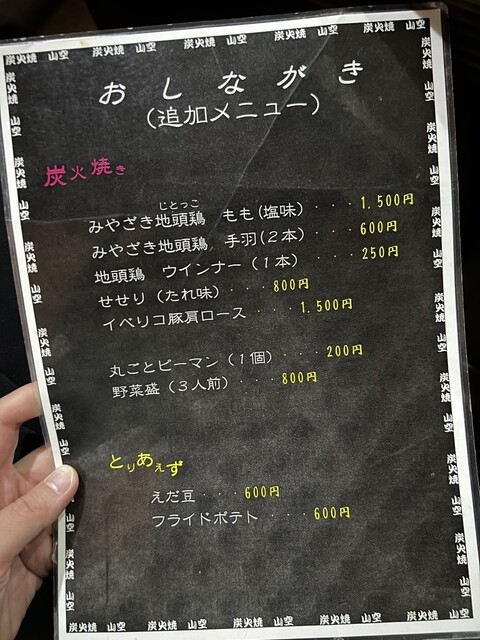 炭火焼 山空 炭火焼 山空 炭火焼 山空 炭火焼 山空 炭火焼
おしながき
(追加メニュー)
炭火焼き
じとっこ
みやざき地頭鶏 もも(塩味)・・・1.500円
みやざき地頭鶏 手羽(2本)・・・600円
地頭鶏 ウインナー(1本)・・・250円
せせり(たれ味)・・・800円
イベリコ豚肩ロース・・・1.500円
丸ごとピーマン(1個)・・・200円
野菜盛(3人前)・・・800円
とりあえず
えだ豆・・・600円
フライドポテト・・・・600円
炭火焼 山空 炭火焼 山空 炭火焼 山空 炭火焼 山空 炭火焼